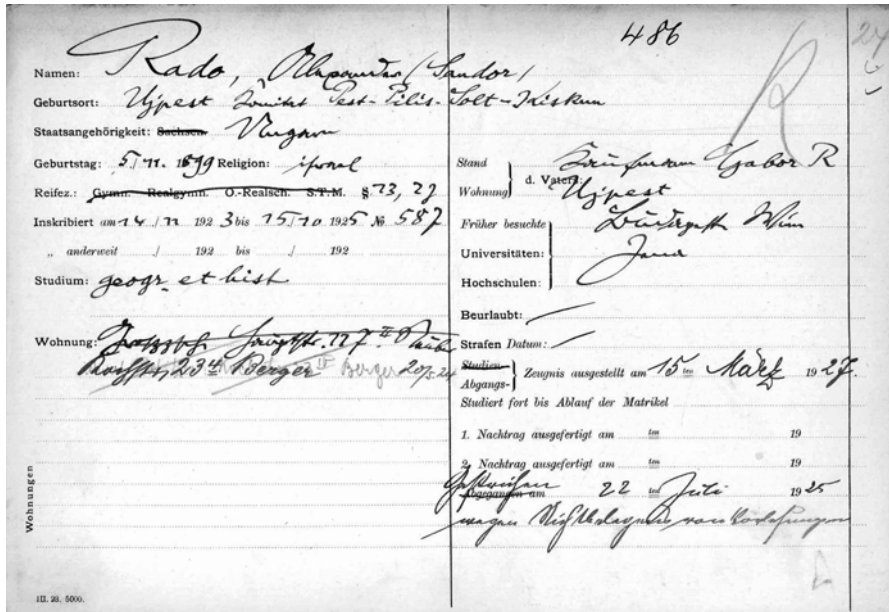 486
Namen: Rado, Alexander (Sandor)
Geburtsort: Ujpest Komitat Pest-Pilis-Solt-Kiskun
Staatsangehörigkeit: Sachsen. Ungarn
Geburtstag: 5/11. 1899 Religion: israel
Reifez.: Gymn. Realgymn. O.-Realsch. S.T.M. §.
Inskribiert am 14/11 1923 bis 15/10 1925 № 587
„ anderweit ./ 192 bis ./ 192
Studium: geogr. et hist
Wohnung: Hauptstr. 127 II
23 Berger IV Berger 20/5.24
Wohnungen
III. 23. 5000.
24
R
Stand
Wohnung } d. Vaters: Kaufmann Gabor R
Ujpest
Früher besuchte
Universitäten:
Hochschulen: } Budapest Wien
Jena
Beurlaubt:
Strafen Datum:
Studien-
Abgangs- } Zeugnis ausgestellt am 15 ten März 1927.
Studiert fort bis Ablauf der Matrikel
1. Nachtrag ausgefertigt am ten 19
2. Nachtrag ausgefertigt am ten 19
Gestrichen
Abgegangen am 22 ten Juli 1925
wegen Nichtbelegens von Vorlesungen